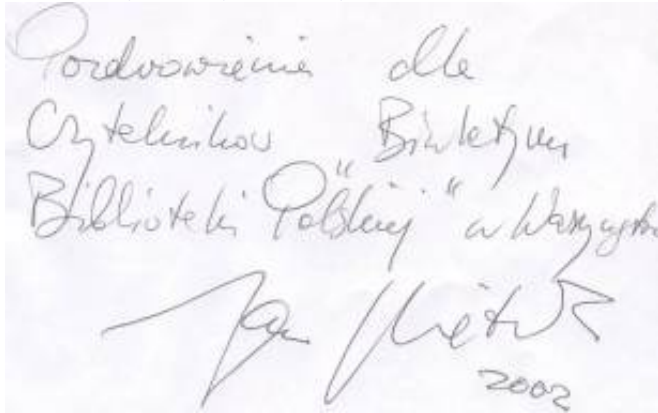 Pozdrowienia dla
Czytelników Biuletynu
Biblioteki "Polskiej" w Waszyngtonie
Jan
2002